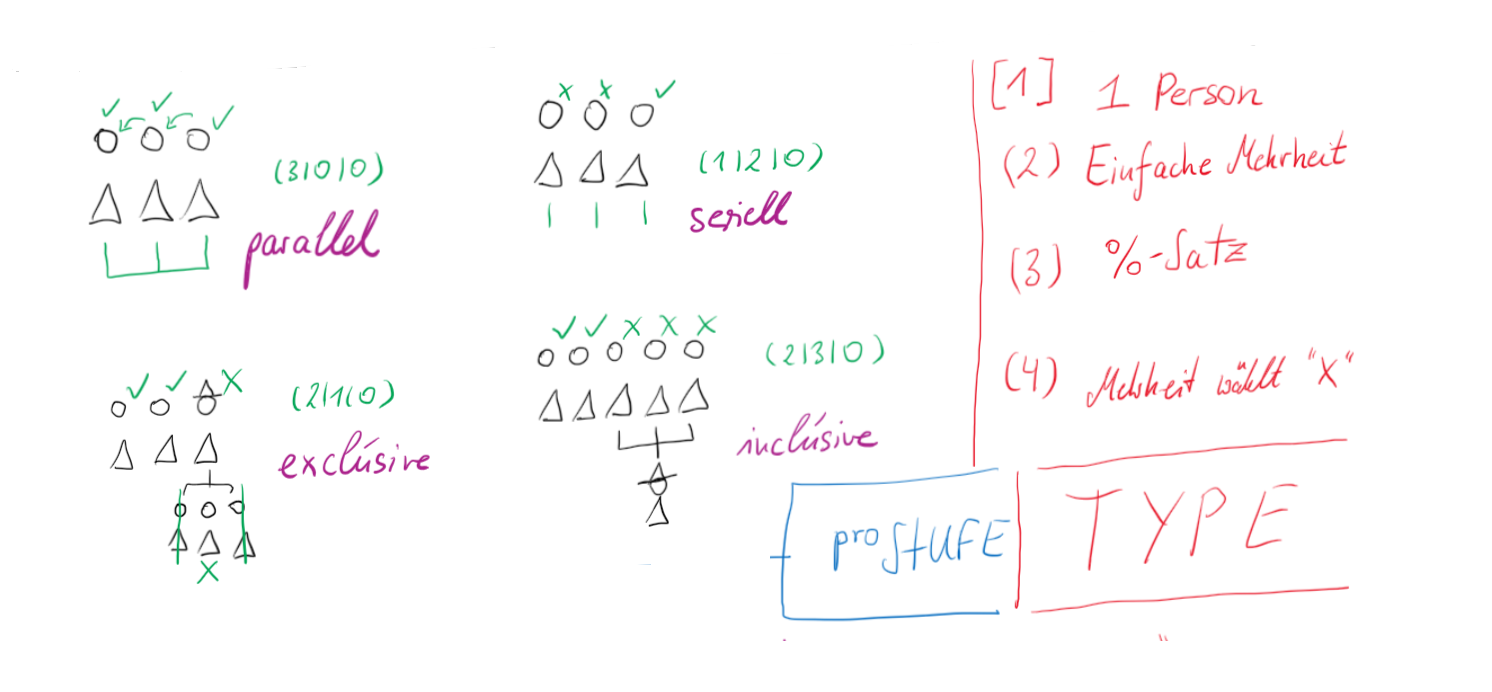 (3|0|0)
parallel
(1|2|0)
seriell
(2|1|0)
exclúsive
(2|3|0)
inclúsive
[1] 1 Person
(2) Einfache Mehrheit
(3) %-Satz
(4) Mehrheit wählt "X"
pro StUFE
TYPE